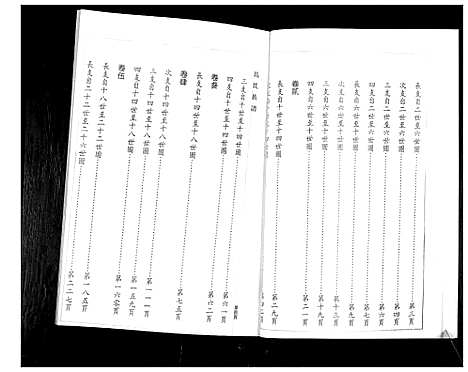 長支自二世至六世圖……第三頁
次支自二世至六世圖……第四頁
三支自二世至六世圖……第六頁
四支自二世至六世圖……第七頁
長支自六世至十世圖……第九頁
次支自六世至十世圖……第十三頁
三支自六世至十世圖……第十九頁
四支自六世至十世圖……第二一頁
卷貳
長支自十世至十四世圖……第二九頁
三支自十世至十四世圖
四支自十世至十四世圖……第六一頁
卷叁
長支自十四世至十八世圖……第六二頁
卷肆
次支自十四世至十八世圖……第七五頁
三支自十四世至十八世圖……第一一一頁
四支自十四世至十八世圖……第一五九頁
卷伍
長支自十八世至二十二世圖……第一六零頁
長支自二十二世至二十六世圖……第一八五頁
第二二七頁